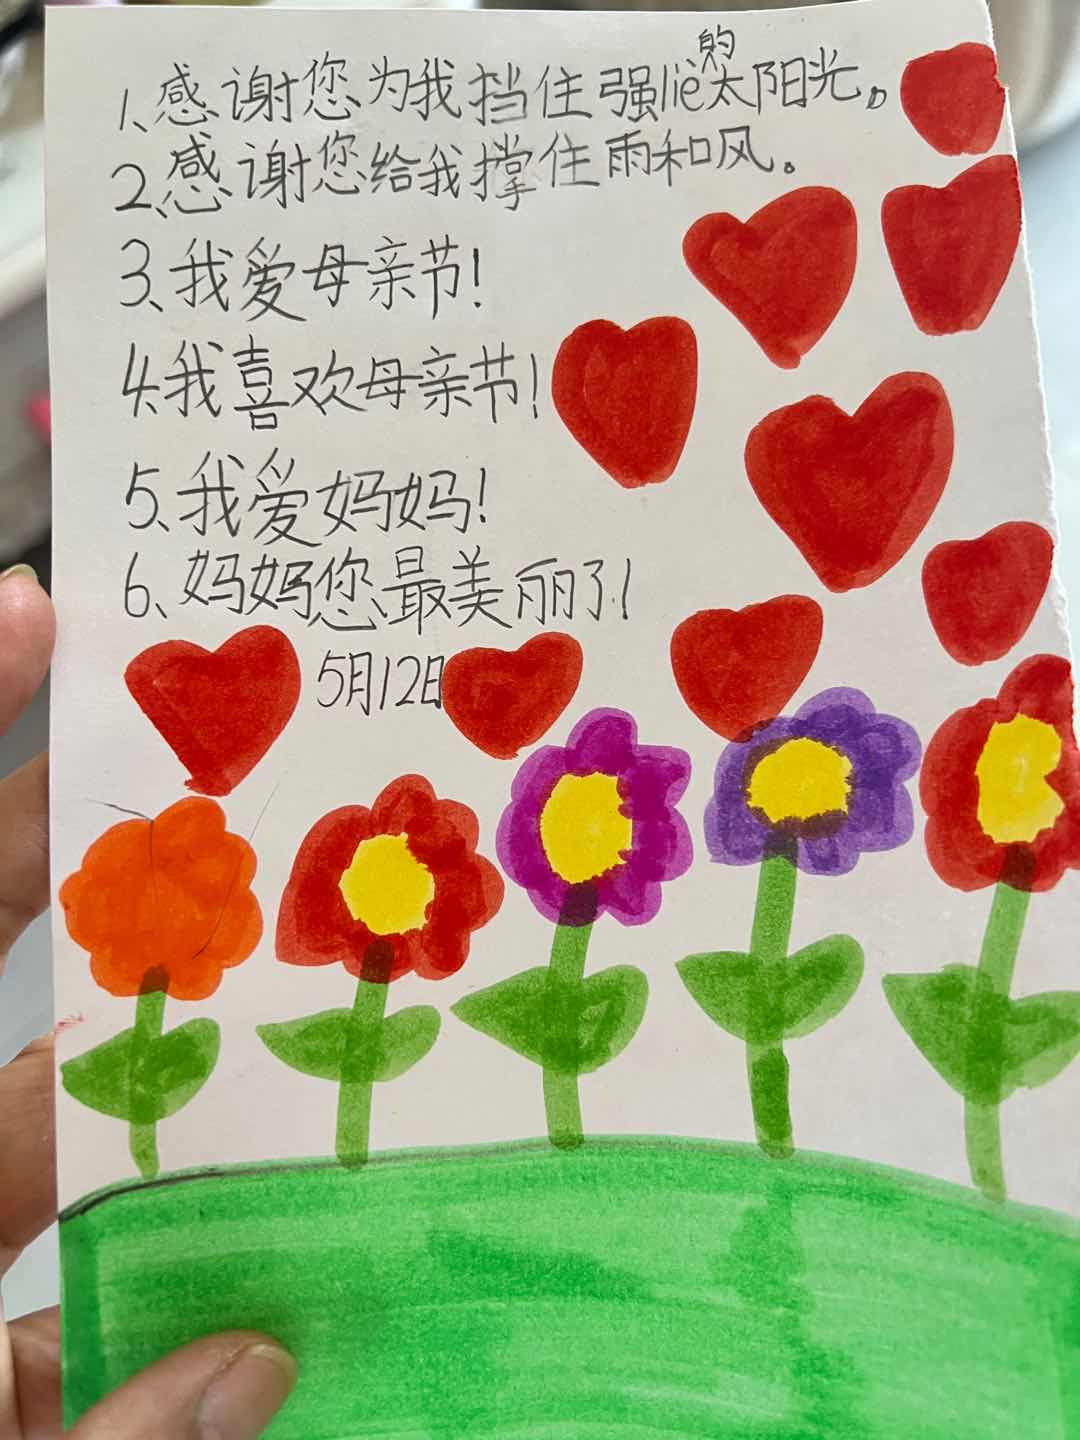 1、感谢您为我挡住强liè的太阳光。
2、感谢您给我撑住雨和风。
3、我爱母亲节!
4、我喜欢母亲节!
5、我爱妈妈!
6、妈妈您最美丽了!
5月12日